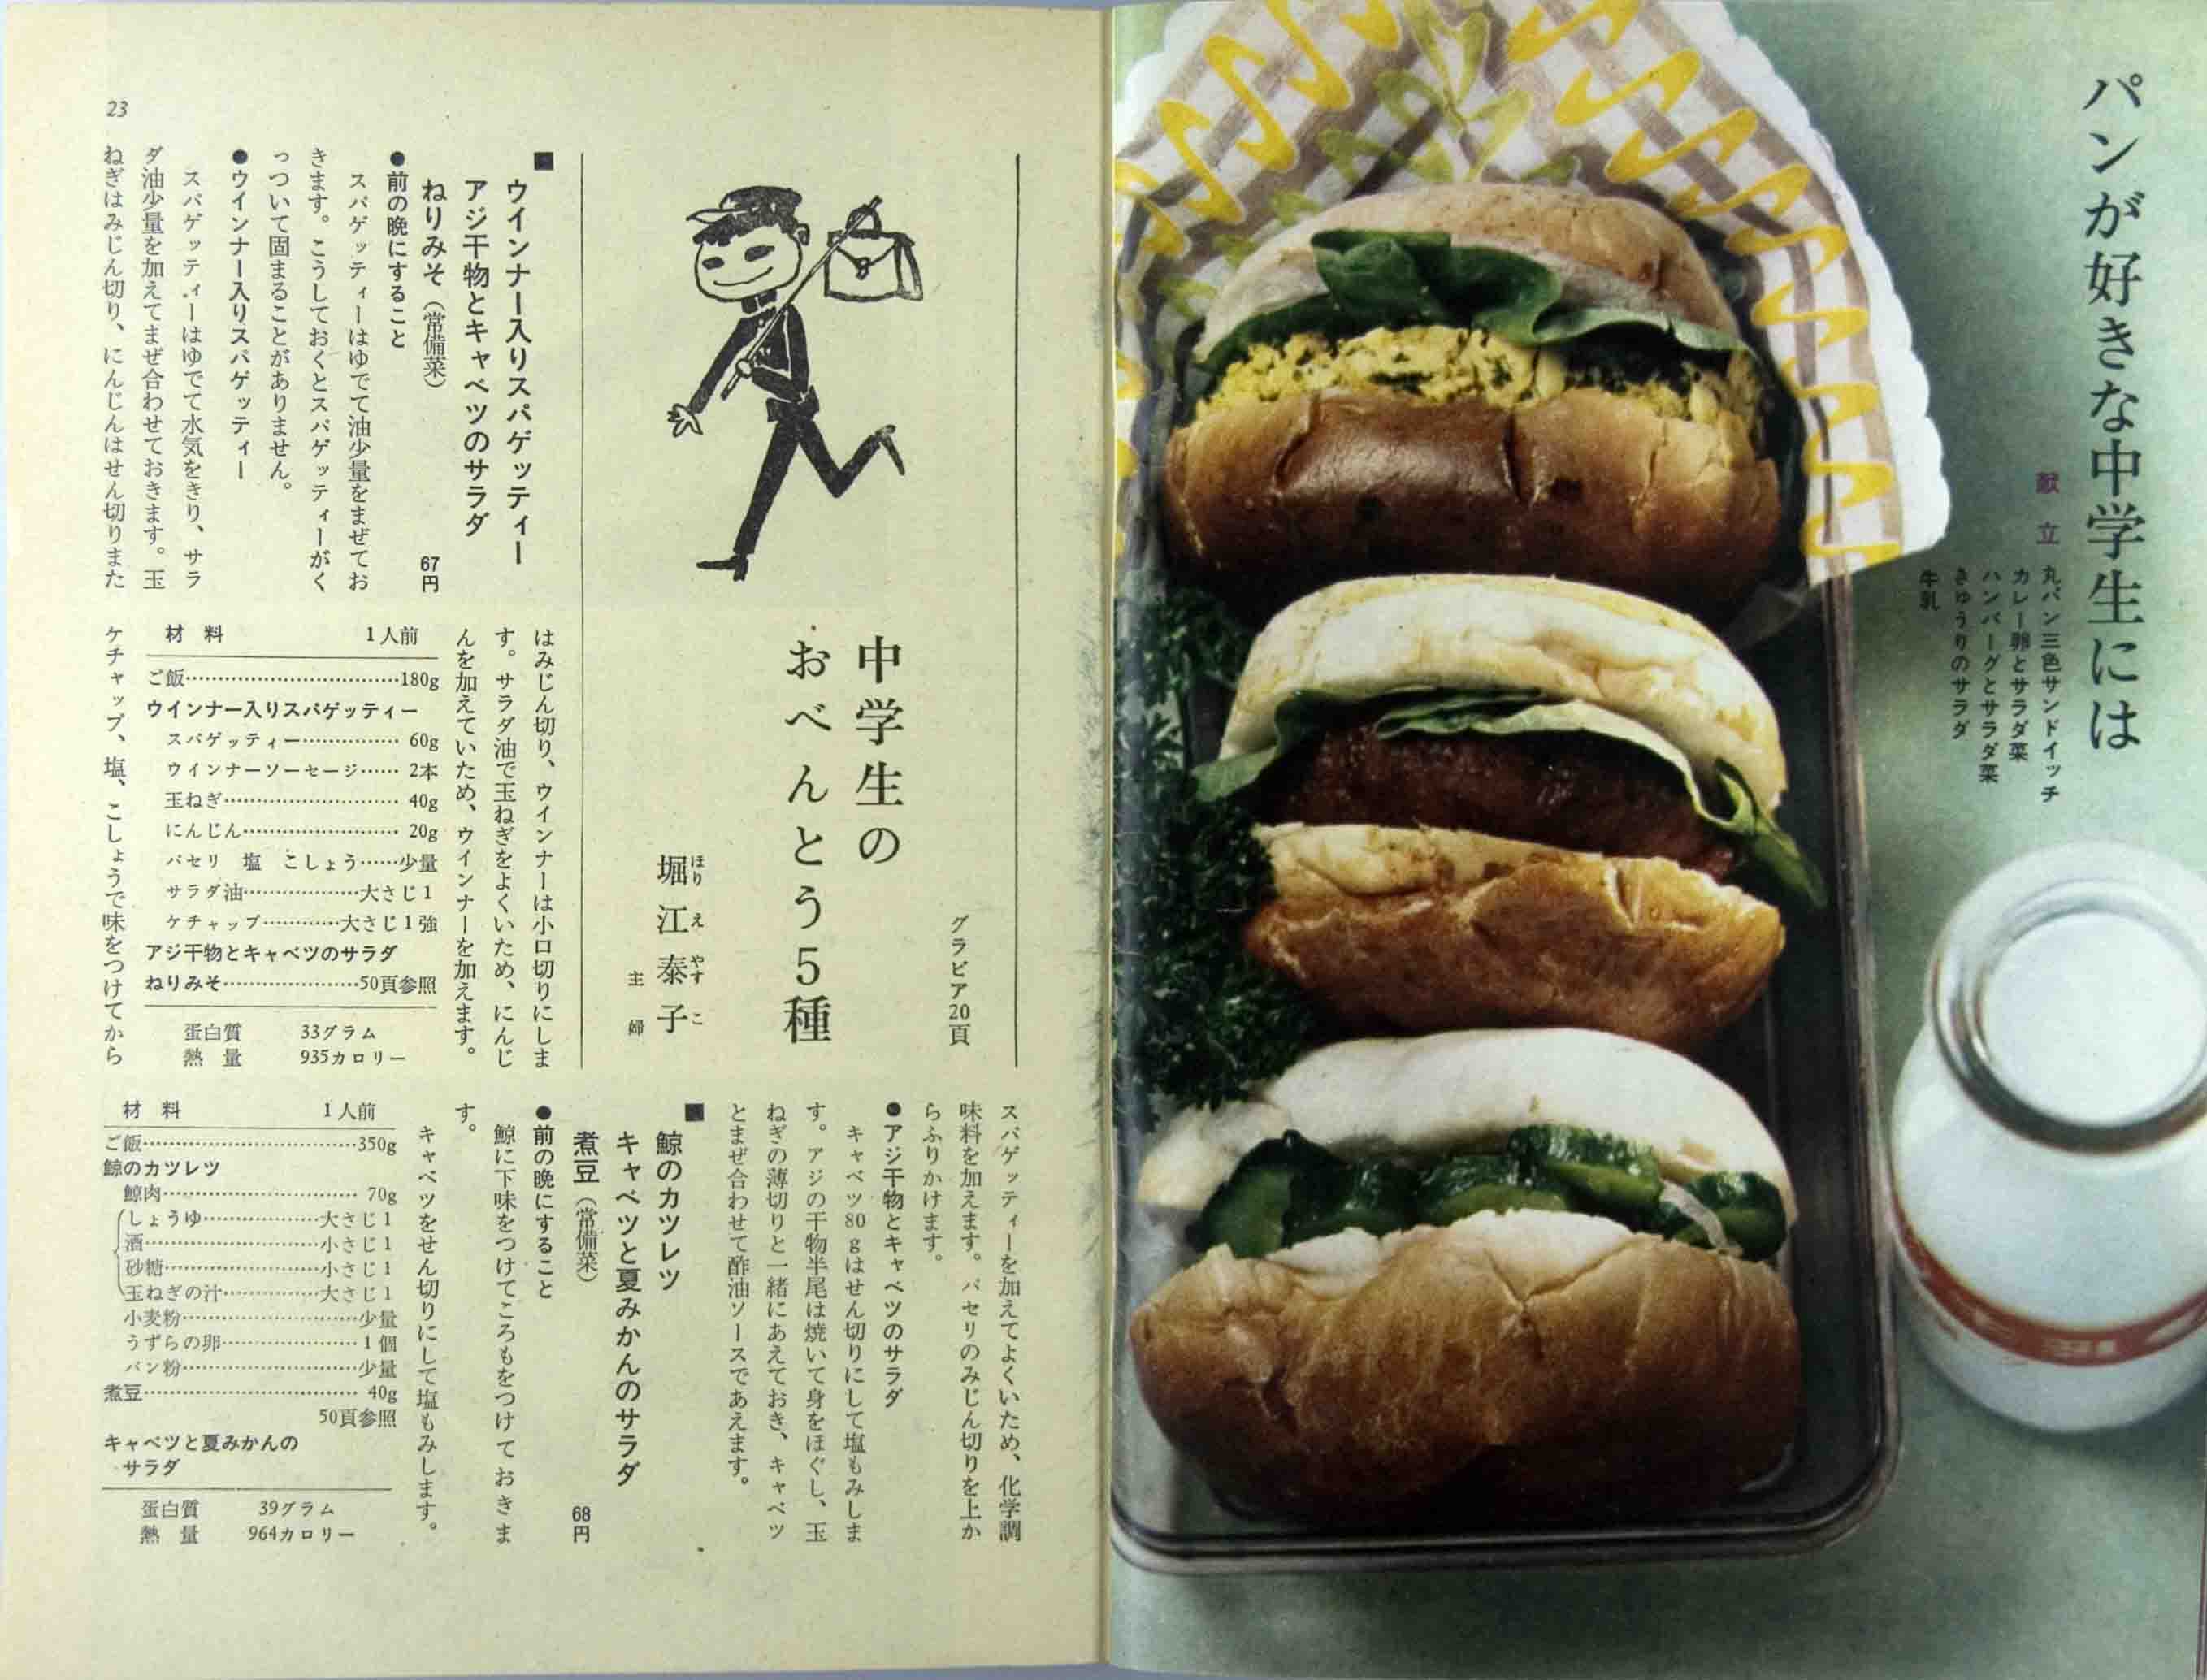 パンが好きな中学生には
献立
丸パン三色サンドイッチ
カレー卵とサラダ菜
ハンバーグとサラダ菜
きゅうりのサラダ
牛乳
グラビア20頁
中学生の
おべんとう5種
堀江泰子
ほりえやすこ
主婦
■ウインナー入りスパゲッティー
アジ干物とキャベツのサラダ
ねりみそ（常備菜）
67円
●前の晩にすること
スパゲッティーはゆでて油少量をまぜてお
きます。こうしておくとスパゲッティーがく
っついて固まることがありません。
●ウインナー入りスパゲッティー
スパゲッティーはゆでて水気をきり、サラ
ダ油少量を加えてまぜ合わせておきます。玉
ねぎはみじん切り、にんじんはせん切りまた
はみじん切り、ウインナーは小口切りにしま
す。サラダ油で玉ねぎをよくいため、にんじ
んを加えていため、ウインナーを加えます。
材料 1人前
ご飯……180g
ウインナー入りスパゲッティー
スパゲッティー……60g
ウインナーソーセージ……2本
玉ねぎ……40g
にんじん……20g
パセリ 塩 こしょう……少量
サラダ油……大さじ1
ケチャップ……大さじ1強
アジ干物とキャベツのサラダ
ねりみそ……50頁参照
蛋白質 33グラム
熱量 935カロリー
ケチャップ、塩、こしょうで味をつけてから
スパゲッティーを加えてよくいため、化学調
味料を加えます。パセリのみじん切りを上か
らふりかけます。
●アジ干物とキャベツのサラダ
キャベツ80gはせん切りにして塩もみしま
す。アジの干物半尾は焼いて身をほぐし、玉
ねぎの薄切りと一緒にあえておき、キャベツ
とまぜ合わせて酢油ソースであえます。
■鯨のカツレツ
キャベツと夏みかんのサラダ
煮豆（常備菜）
68円
●前の晩にすること
鯨に下味をつけてころもをつけておきま
す。
キャベツをせん切りにして塩もみします。
材料 1人前
ご飯……350g
鯨のカツレツ
鯨肉……70g
しょうゆ……大さじ1
酒……小さじ1
砂糖……小さじ1
玉ねぎの汁……大さじ1
小麦粉……少量
うずらの卵……1個
パン粉……少量
煮豆……40g
50頁参照
キャベツと夏みかんの
サラダ
蛋白質 39グラム
熱量 964カロリー
23